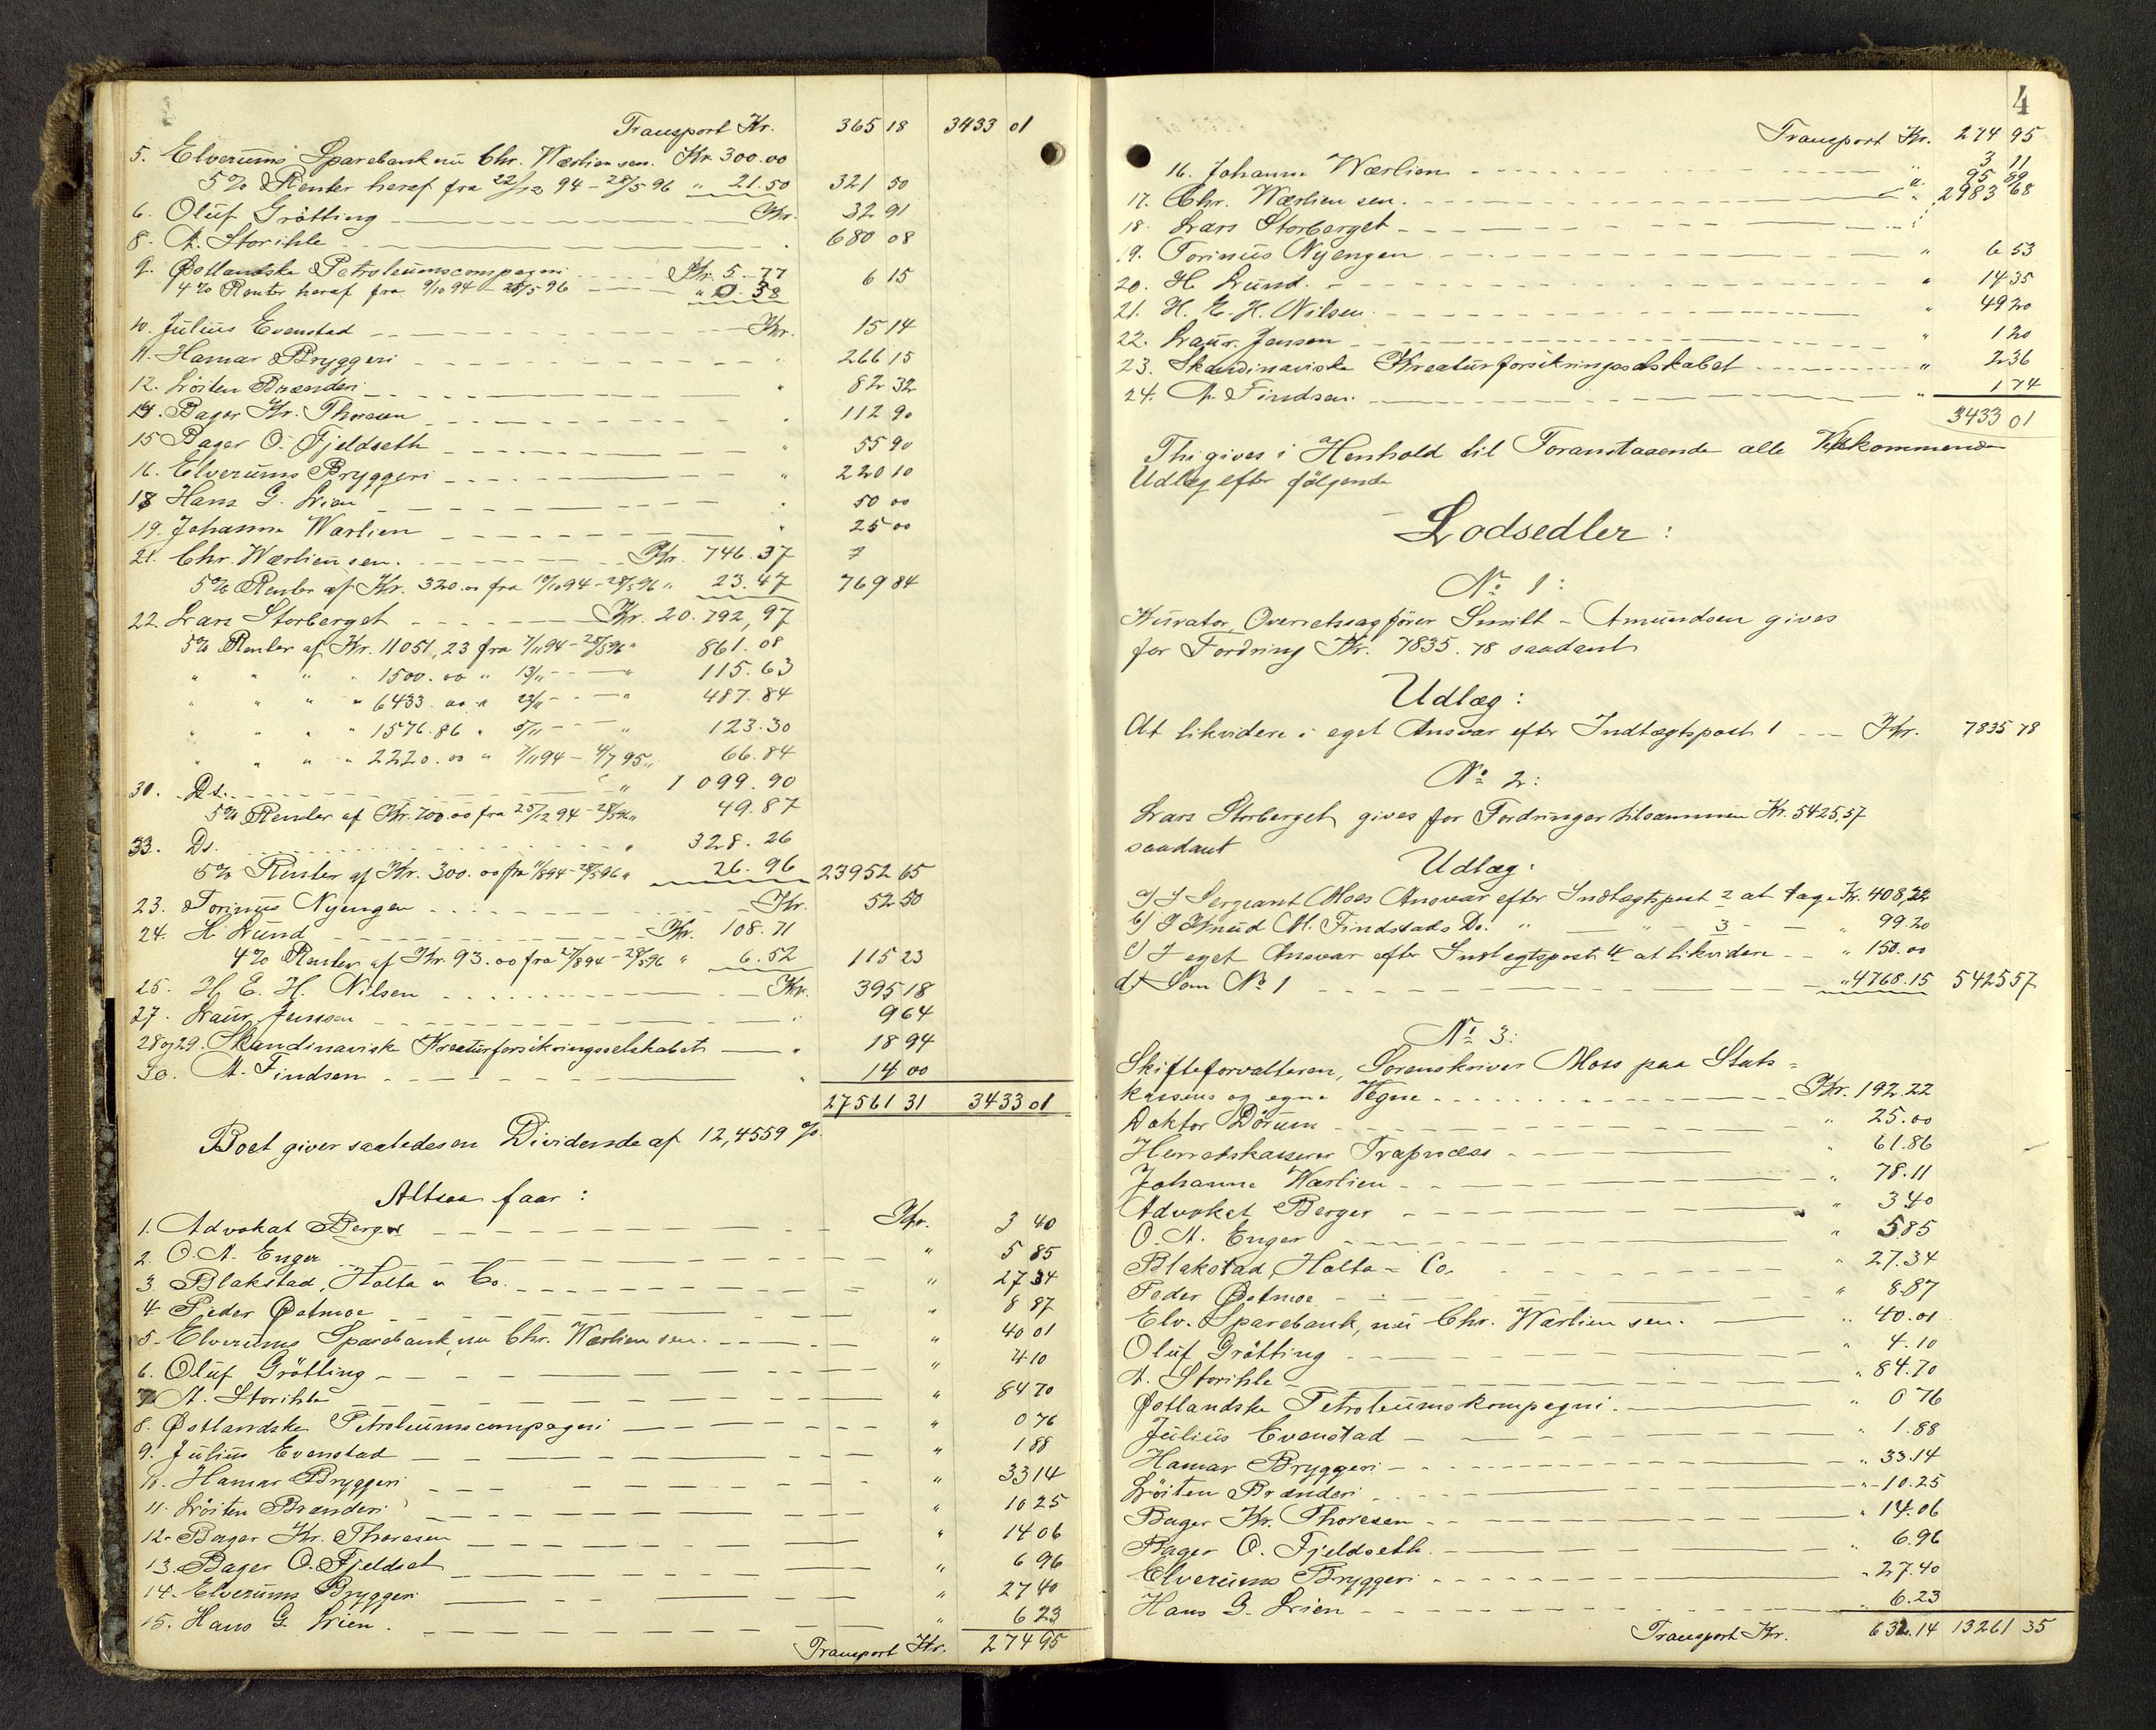 Transport Kr. 365 18 3433 01
5. Elverums Sparebank nu Chr. Wærlien sen. Kr. 300.00
5% Renter heraf fra 22/12 94 - 28/5 96 " 21.50 321 50
6. Oluf Grøtting Kr. 32 91
8. A. Storihle 680 08
9. Østlandske Petroleumscompagni Kr. 5.77 6 15
4% Renter heraf fra 9/10 94 - 28/5 96 " 0.38
10. Julius Evenstad Kr. 15 14
11. Hamar Bryggeri " 266 15
12. Løiten Brænderi " 82 32
14. Bager Kr. Thoresen " 112 90
15 Bager O. Fjeldseth " 55 90
16. Elverums Bryggeri " 220 10
18 Hans G. Lien " 50 00
19. Johanne Wærlien " 25 00
21. Chr. Wærlien sen. Kr. 746.37
5% Renter af Kr. 320.00 fra 10/12 94 - 28/5 96 " 23.47 769 84
22. Lars Storberget Kr. 20.792,97
5% Renter af Kr. 11051,23 fra 7/11 94 - 28/5 96 " 861.08
" " " " 1500.00 " 13/11 - - " 115.63
" " " " 6433.00 " 23/11 - - " 487.84
" " " " 1576.86 " 5/11 - - " 123.30
" " " " 2220.00 " 7/11 94 - 4/7 95 " 66.84
30. Ds. " 1099.90
5% Renter af Kr. 700.00 fra 25/12 94 - 28/5 96 " 49.87
33. Ds. " 328.26
5% Renter af Kr. 300.00 fra 11/8 94 - 28/5 96 " 26.96 23952 65
23. Torinus Nyengen Kr. 52 50
24. H. Lund Kr. 108.71
4% Renter af Kr. 93.00 fra 27/8 94 - 28/5 96 " 6.52 115 23
25. H. E. H. Nilsen Kr. 395 18
27. Laur. Jensen " 9 64
28 og 29. Skandinaviske Kreaturforsikringsselskabet " 18 94
30. A. Findsen " 14 00
27561 31 3433 01
Boet giver saaledes en Dividende af 12,4559 %.
Altsaa faar:
1. Advokat Berger Kr. 3 40
2. O. A. Enger " 5 85
3. Blakstad, Holta & Co. " 27 34
4 Peder Østmoe " 8 87
5. Elverums Sparebank, nu Chr. Wærlien sen. " 40 01
6. Oluf Grøtting " 4 10
7 A. Storihle " 84 70
8. Østlandske Petroleumscompagni " 0 76
9. Julius Evenstad " 1 88
10. Hamar Bryggeri " 33 14
11. Løiten Brænderi " 10 25
12. Bager Kr. Thoresen " 14 06
13. Bager O. Fjeldset " 6 96
14. Elverums Bryggeri " 27 40
15. Hans G. Lien. " 6 23
Transport Kr. 274 95
4
Transport Kr. 274 95
16. Johanne Wærlien " 3 11
17. Chr. Wærlien sen. " 95 89
18. Lars Storberget " 2983 68
19. Torinus Nyengen " 6 53
20. H. Lund. " 14 35
21. H. E. H. Nilsen " 49 20
22. Laur. Jensen " 1 20
23. Skandinaviske Kreaturforsikringsselskabet " 2 36
24. A. Findsen " 1 74
3433 01
Thi gives i Henhold til Foranstaaende alle Vedkommende
Udlæg efter følgende
Lodsedler:
No 1:
Kurator, Overretssagfører Smith-Amundsen gives
for Fordring Kr. 7835.78 saadant
Udlæg:
At likvidere i eget Ansvar efter Indtægtspost 1 Kr. 7835 78
No 2:
Lars Storberget gives for Fordringer tilsammen Kr. 5425,57
saadant
Udlæg:
a) I Sergeant Moes Ansvar efter Indtægtspost 2 at tage Kr. 408,22
b) I Knud M. Findstads Do. " " 3 " 99.20
c) I eget Ansvar efter Indtægtspost 4 at likvidere " 150.00
d) Som No 1 " 4768.15 5425 57
No 3:
Skifteforvalteren, Sorenskriver Moss paa Stats-
kassens og egne Vegne Kr. 192.22
Doktor Dørum " 25.00
Herredskasserer " 61.86
Johanne Wærlien " 78.11
Advokat Berger " 3 40
O. A. Enger " 5 85
Blakstad, Holta & Co. " 27.34
Peder Østmoe " 8.87
Elv. Sparebank, nu Chr. Wærlien sen. " 40.01
Oluf Grøtting " 4.10
A. Storihle " 84.70
Østlandske Petroleumskompagni. " 0 76
Julius Evenstad " 1.88
Hamar Bryggeri " 33.14
Løiten Brænderi " 10.25
Bager Kr. Thoresen " 14.06
Bager O. Fjeldseth " 6.96
Elverums Bryggeri " 27.40
Hans G. Lien " 6.23
Transport Kr. 632.14 13261 35